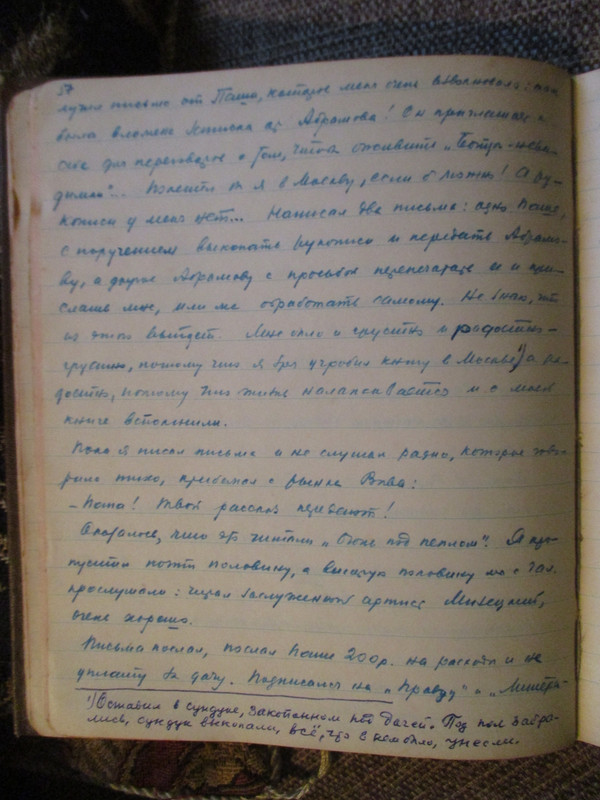 57
лучил письмо от Паши, которое меня очень взволновало: там
была вложена записка от Абрамова! Он приглашает к
себе для переговоров о том, чтоб оживить „Театр-неви-
димку"... Полететь бы я в Москву, если б можно! А ру-
кописи у меня нет... Написал два письма: одно Паше,
с поручением выкопать рукописи и передать Абрамо-
ву, а другое Абрамову с просьбой перепечатать и при-
слать мне, или же обработать самому. Не знаю, что
из этого выйдет. Мне было и грустно и радостно -
грустно, потому что я зря угробил книгу в Москве¹⁾, а ра-
достно, потому что жизнь налаживается и о моей
книге вспомнили.
Пока я писал письма и не слушал радио, которое гово-
рило тихо, прибежал с рынка Вова:
- Папа! Твой рассказ передают!
Оказалось, что это читали „Огонь под пеплом". Я про-
пустил почти половину, а вторую половину мы с Гал.
прослушали: читал заслуженный артист
очень хорошо.
Письма послал, послал Паше 200р. на расходы и на
уплату за дачу. Подписался на „Правду" и „Литера-
¹⁾ Оставил в сундуке, закопанном под дачей. Под пол забра-
лись, сундук выкопали, всё, что в нем было, унесли.